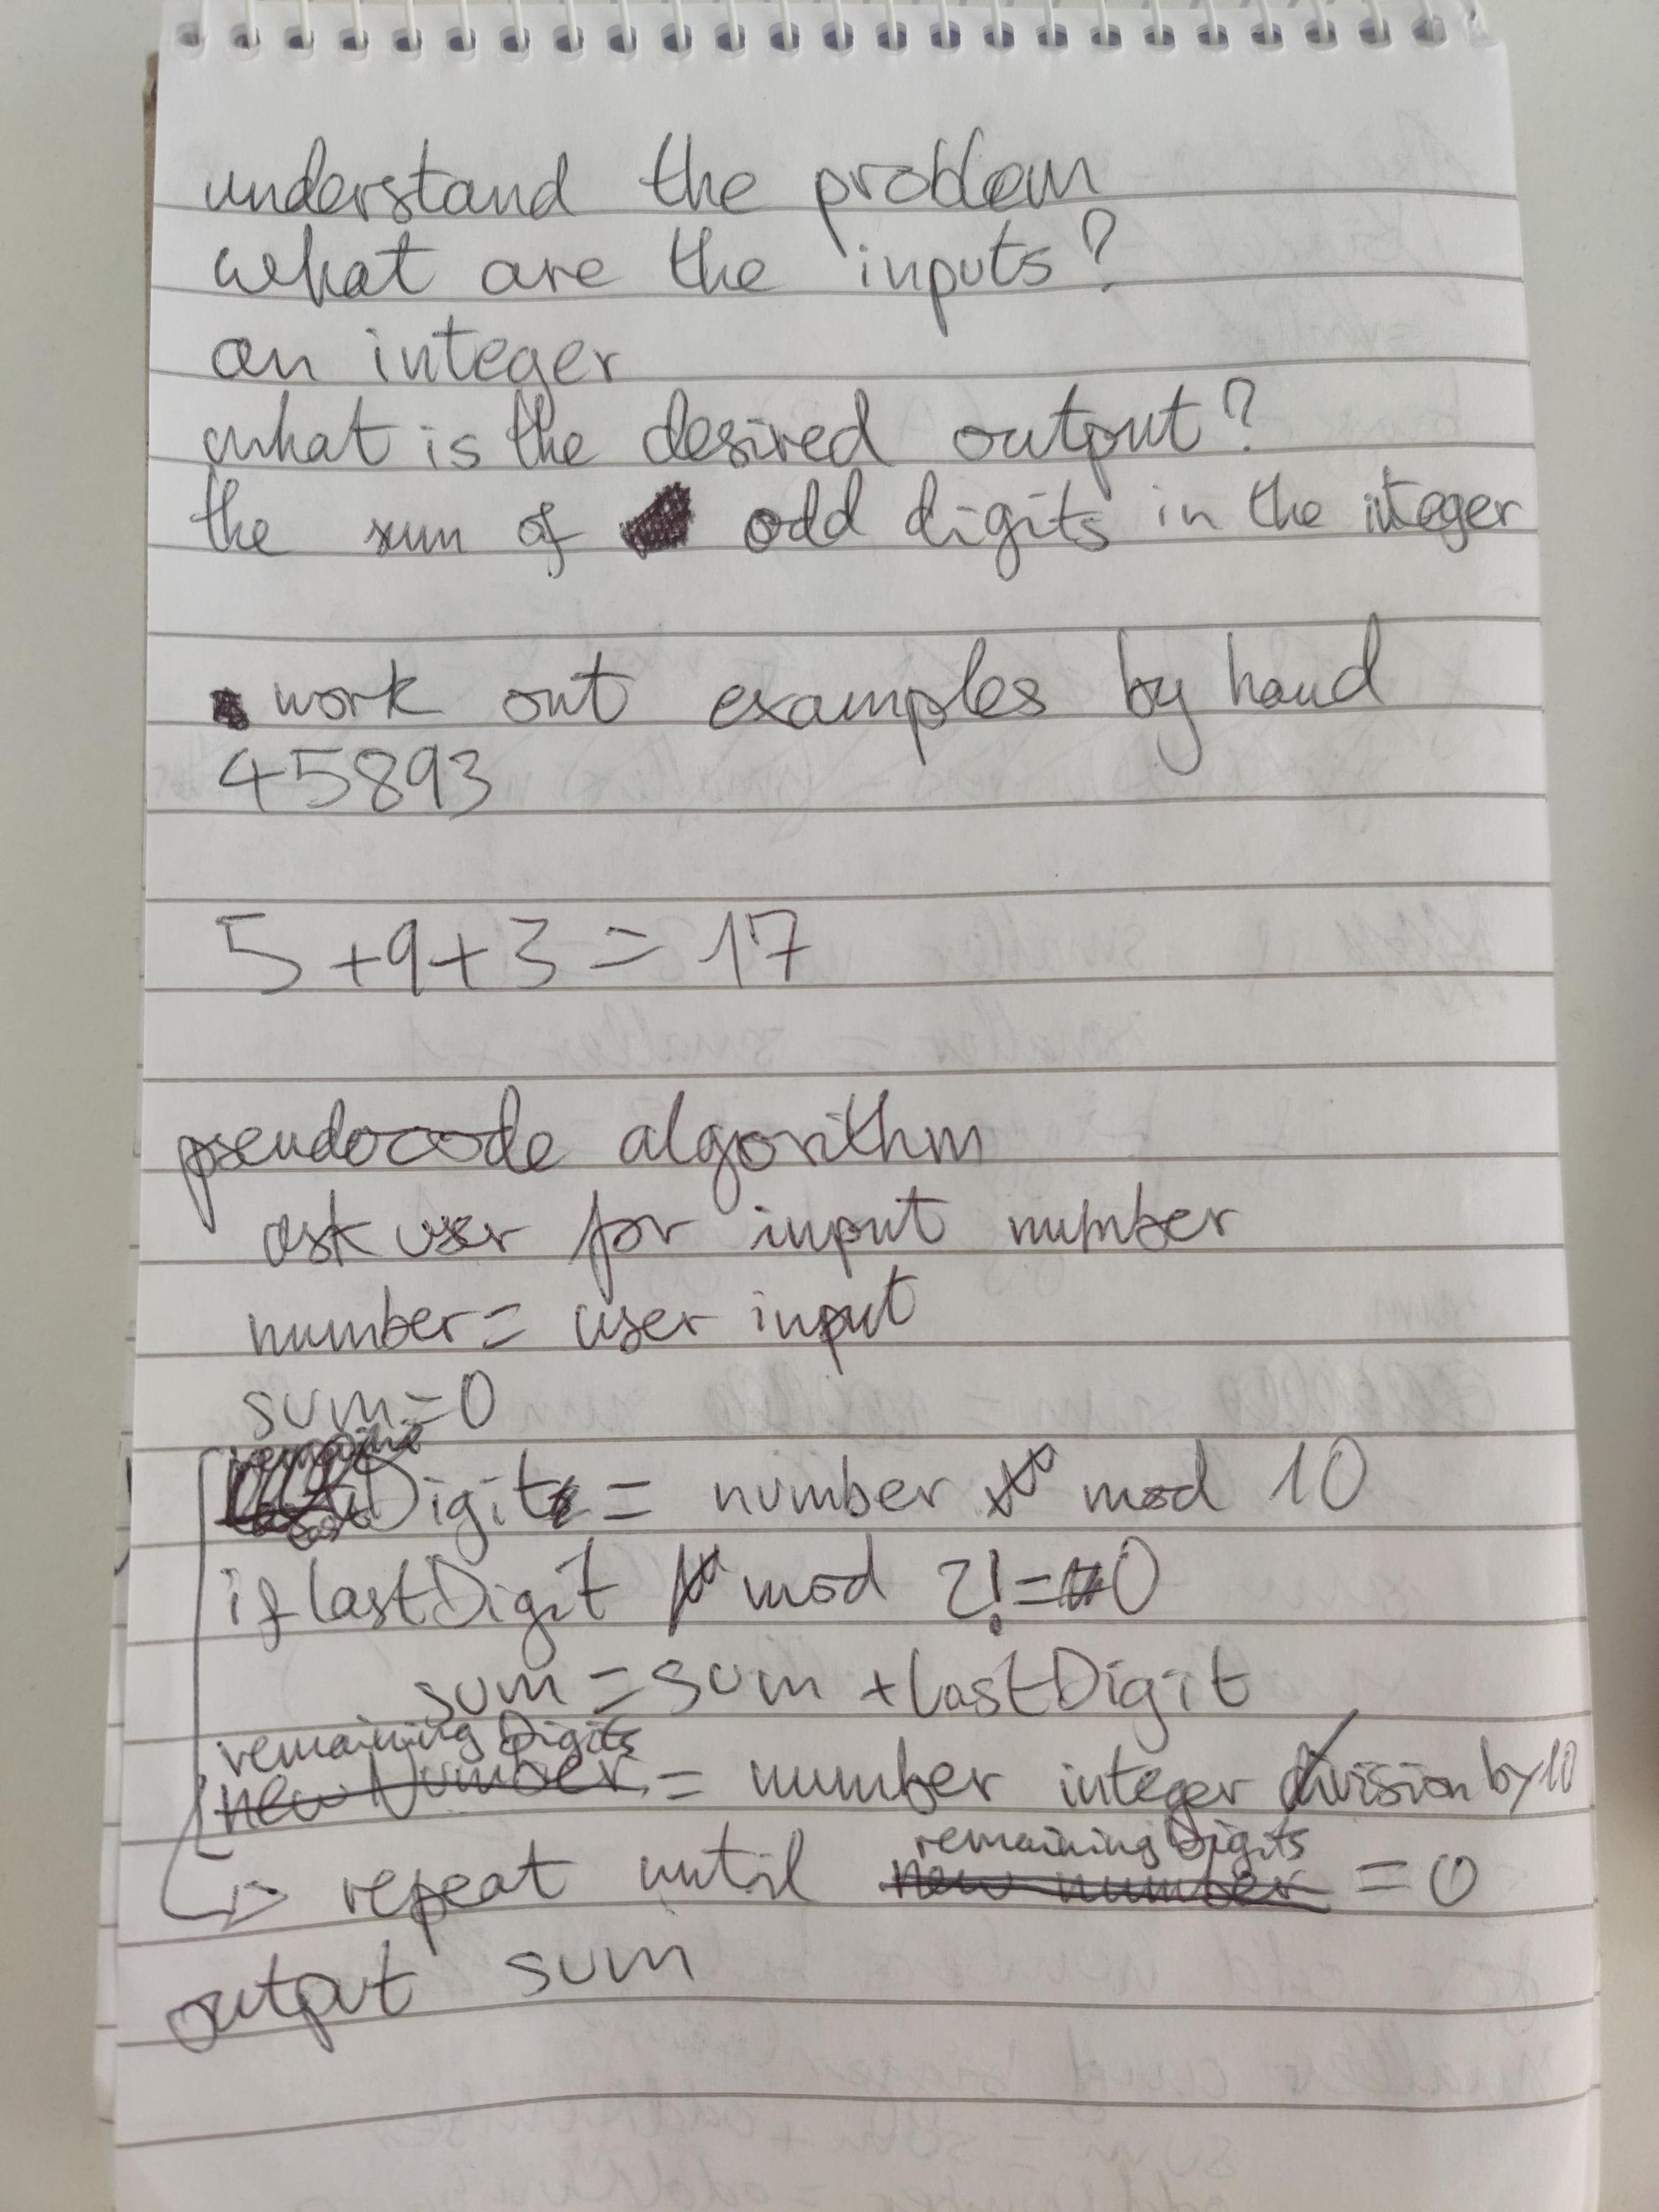 understand the problem
what are the inputs?
an integer
what is the desired output?
the sum of odd digits in the integer
work out examples by hand
45893
5+9+3=17
pseudocode algorithm
ask user for input number
number= user input
sum=0
lastDigit = number mod 10
if lastDigit mod 2!=0
sum=sum +lastDigit
remainingDigits
newNumber = number integer division by 10
remainingDigits
repeat until new number =0
output sum